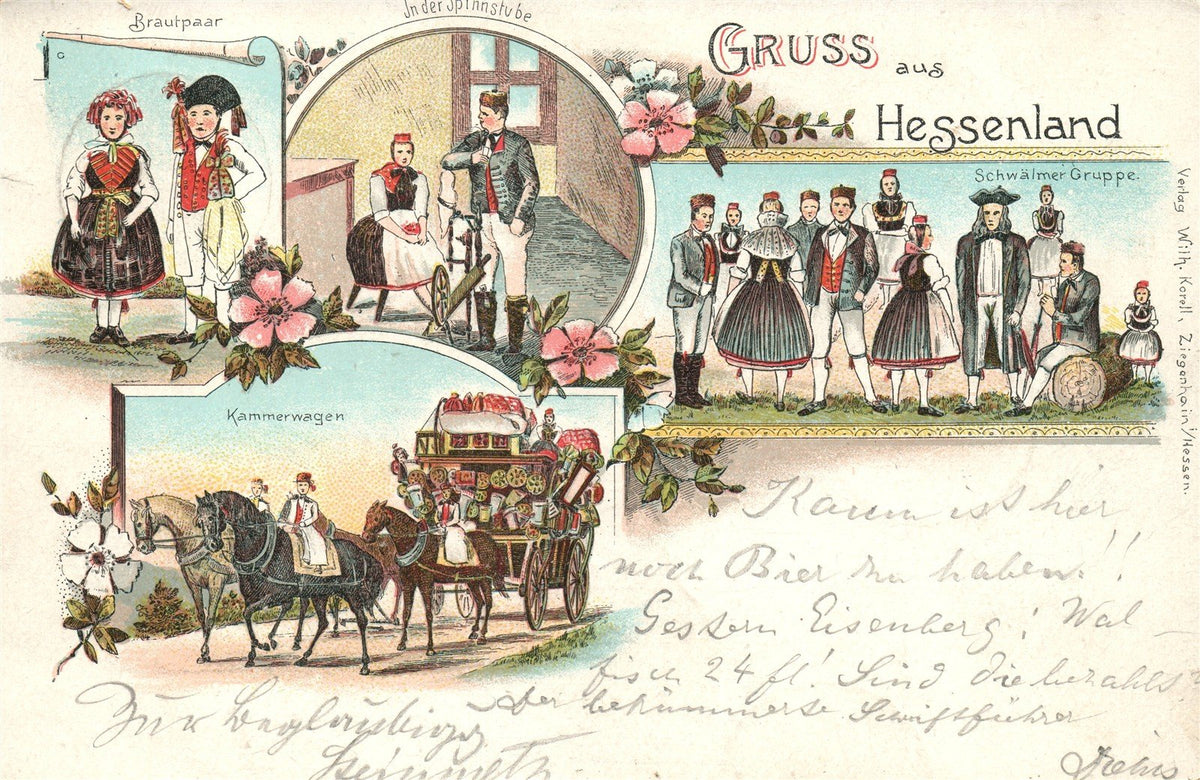 Brautpaar
In der Spinnstube
GRUSS aus
Hessenland
Schwälmer Gruppe.
Kammerwagen
Verlag Wilh. Korell, Ziegenhain/Hessen.
Kaum ist hier
noch Bier zu haben!!
Gestern Eisenberg; Wal-
fisch 24 fl! Sind die bezahlt?
Der bekümmerte Schriftführer
Zur Beglaubigg